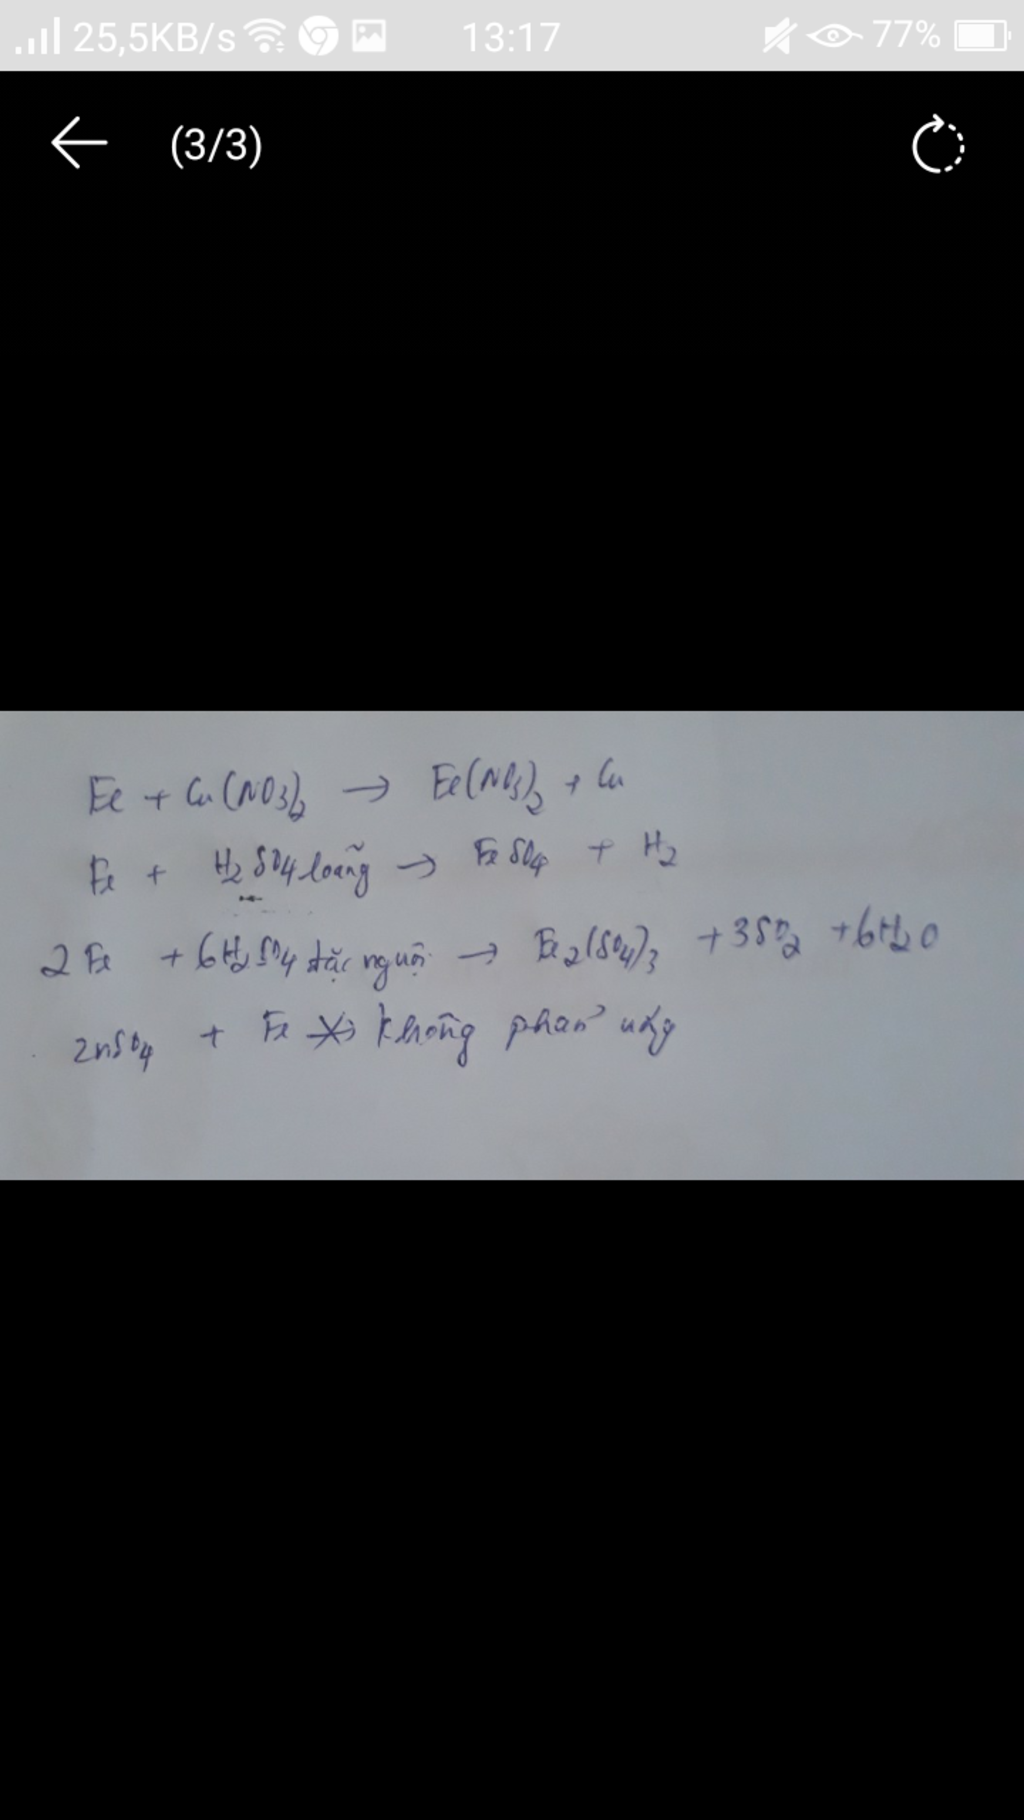 25,5KB/s 13:17 77%
(3/3)
Fe + Cu(NO3)2 → Fe(NO3)2 + Cu
Fe + H2SO4 loãng → FeSO4 + H2
2Fe + 6H2SO4 đặc nguội → Fe2(SO4)3 + 3SO2 + 6H2O
ZnSO4 + Fe ↛ không phản ứng